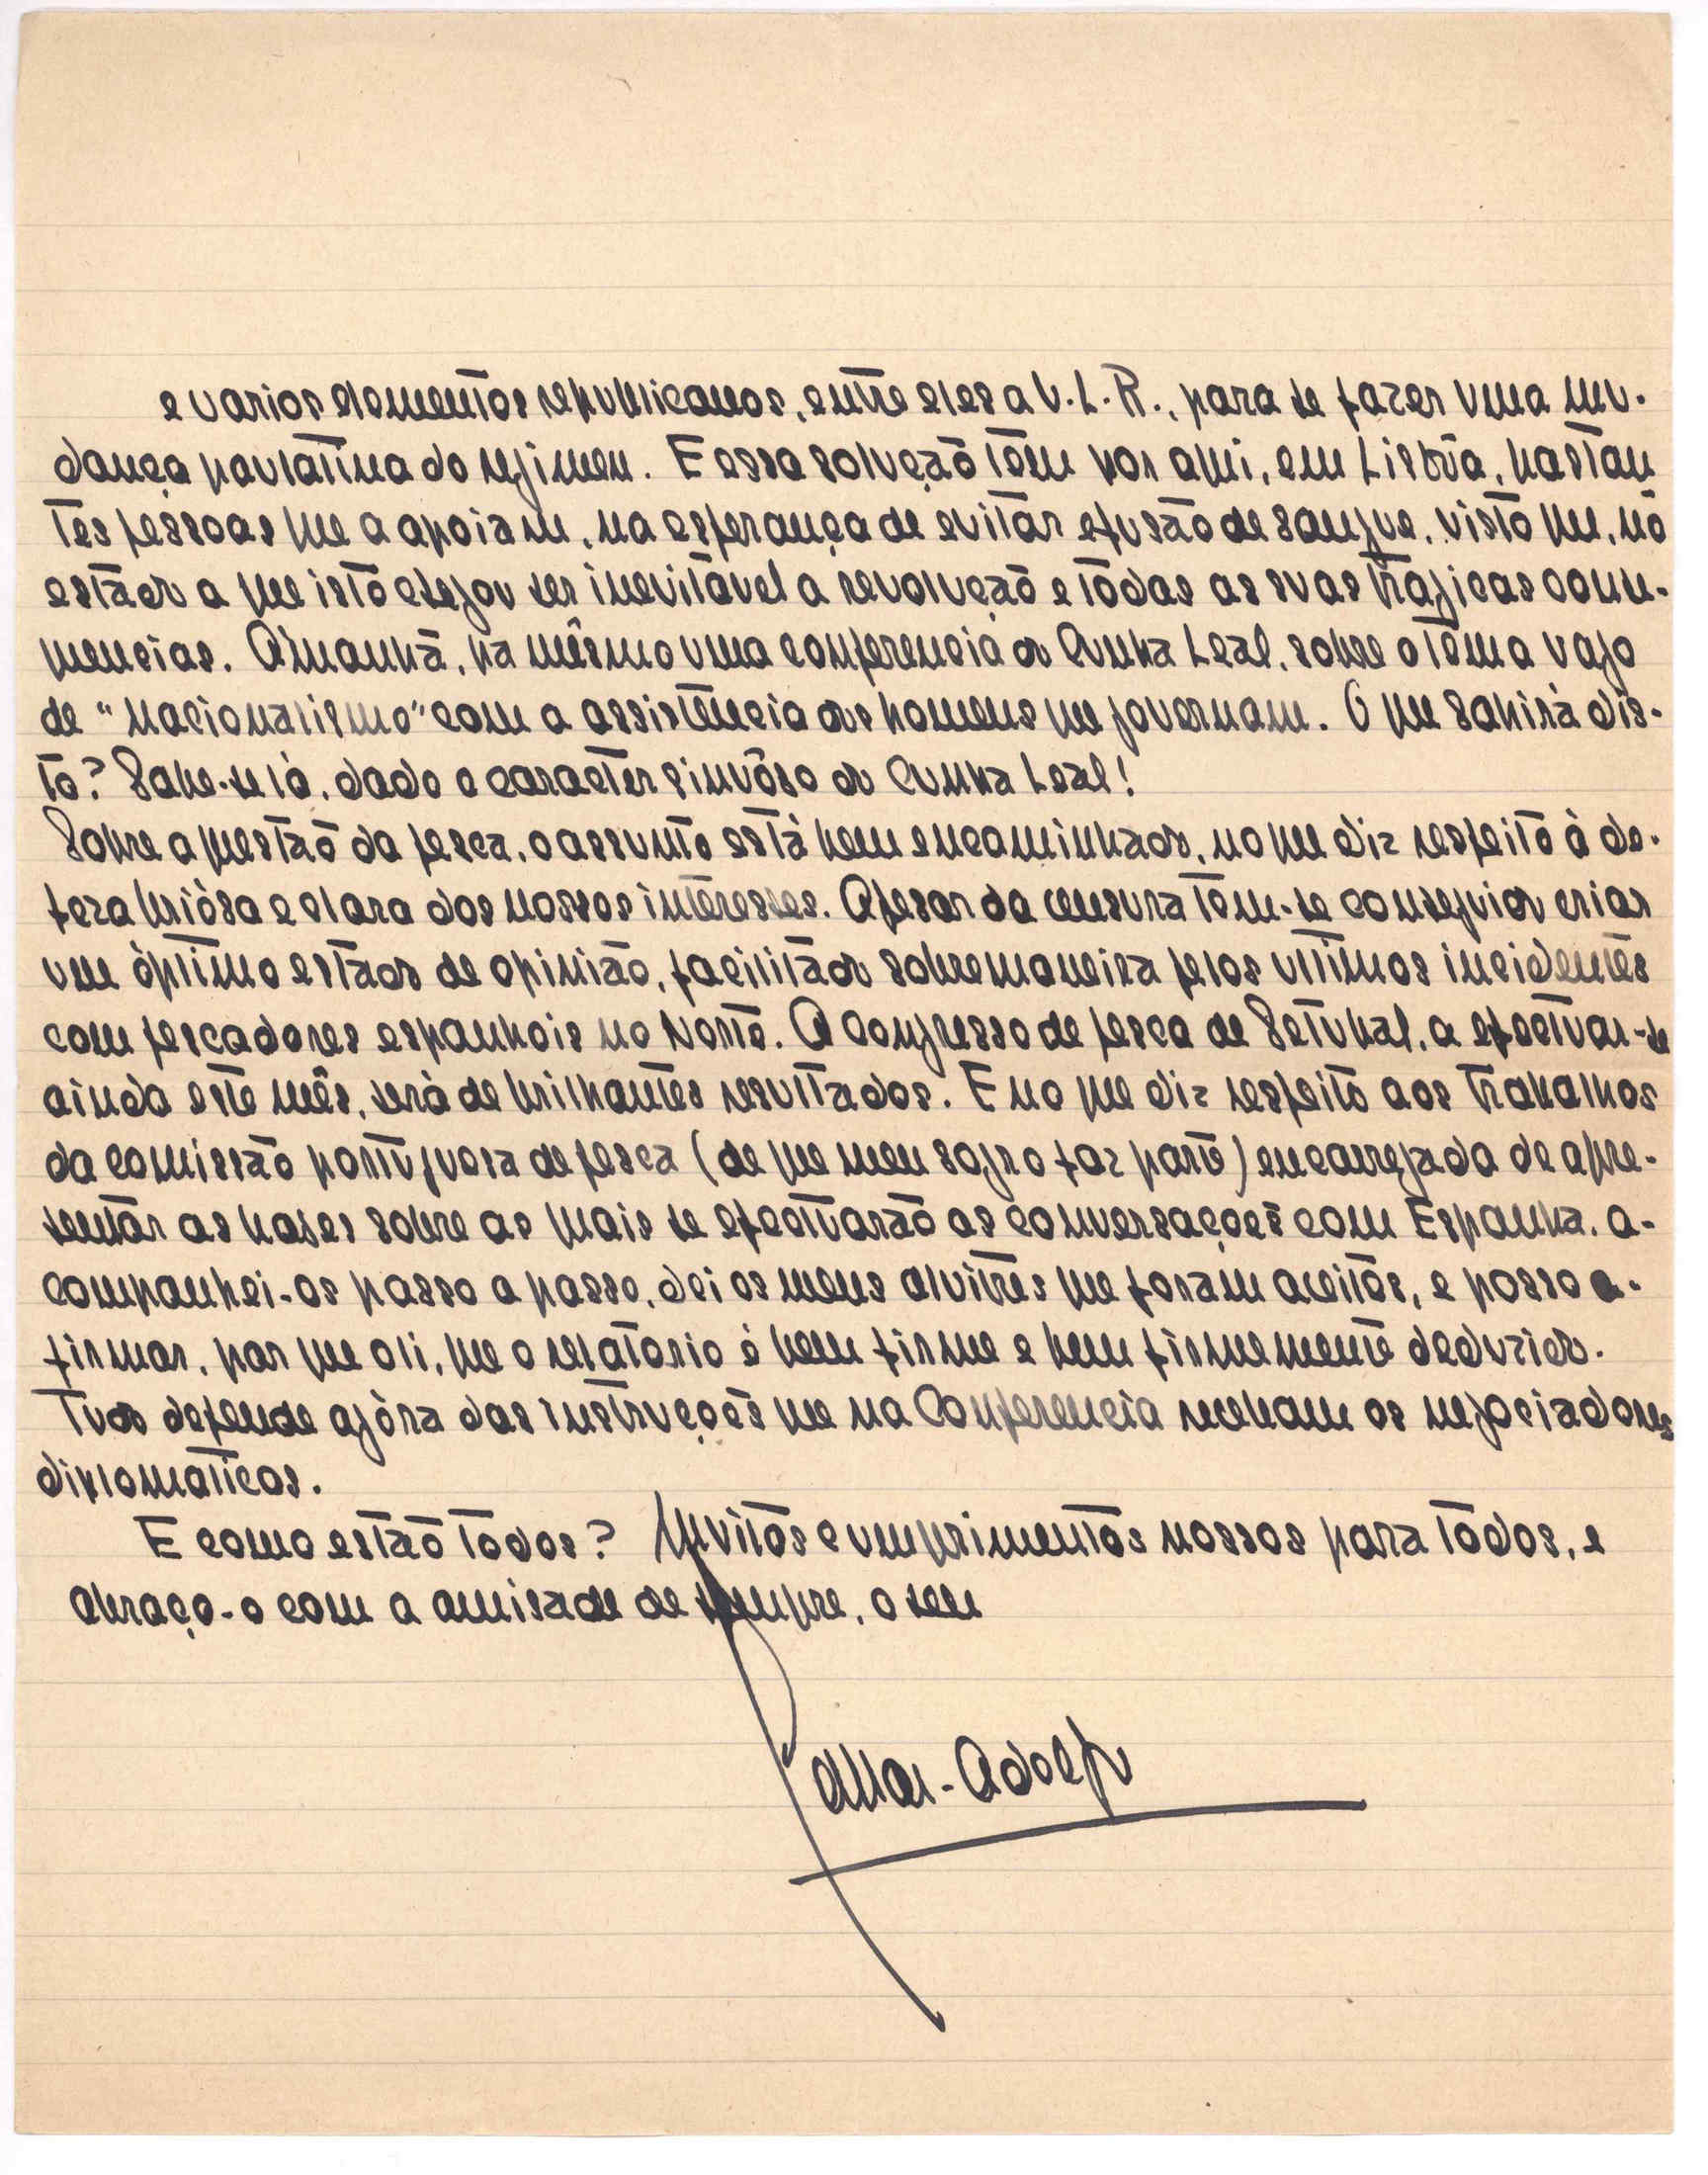 e varios elementos republicanos, entre eles a U.L.R., para se fazer uma mu-
dança paulatina do regimen. E essa solução tem por aqui, em Lisbôa, bastan
tes pessoas que a apoiam, na esperança de evitar efusão de sangue, visto que, nò
estado a que isto chegou ser inevitável a revolução e todas as suas trágicas conse-
quencias. Àmanhã, ha mêsmo uma conferencia do Cunha Leal, sobre o tema vago
de "Nacionalismo" com a assistencia dos homens que governam. O que sahirà dis-
to? Sabe-se là, dado o caracter sinuôso do Cunha Leal!
Sobre a questão da pesca, o assunto està bem encaminhado, no que diz respeito à de-
feza briòsa e clara dos nossos interesses. Apesar da censura tem-se conseguido criar
um òptimo estado de opinião, facilitado sobremaneira pelos ultimos incidentes
com pescadores espanhois no Norte. O Congresso de pesca de Setubal, a efectuar-se
ainda este mês, serà de brilhantes resultados. E no que diz respeito aos trabalhos
da comissão portuguesa de pesca (de que meu sogro faz parte) encarregada de apre-
sentar as bases sobre as quais se efectuarão as conversações com Espanha, a-
companhei-os passo a passo, dei os meus alvitres que foram aceitos, e posso a-
firmar, par que oli, que o relatorio é bem firme e bem firmemente deduzido.
Tudo depende agòra das instruções que na Conferencia recebam os negociadores
diplomaticos.
E como estão todos? Muitos cumprimentos nossos para todos, e
abraço-o com a amisade de sempre, o seu